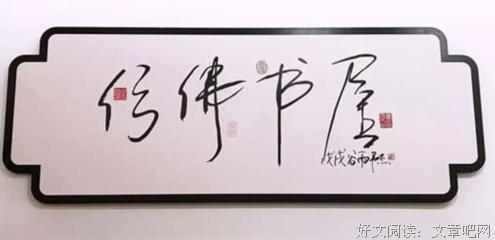 仿佛书屋
戊戌谷雨
好文阅读：文章吧网